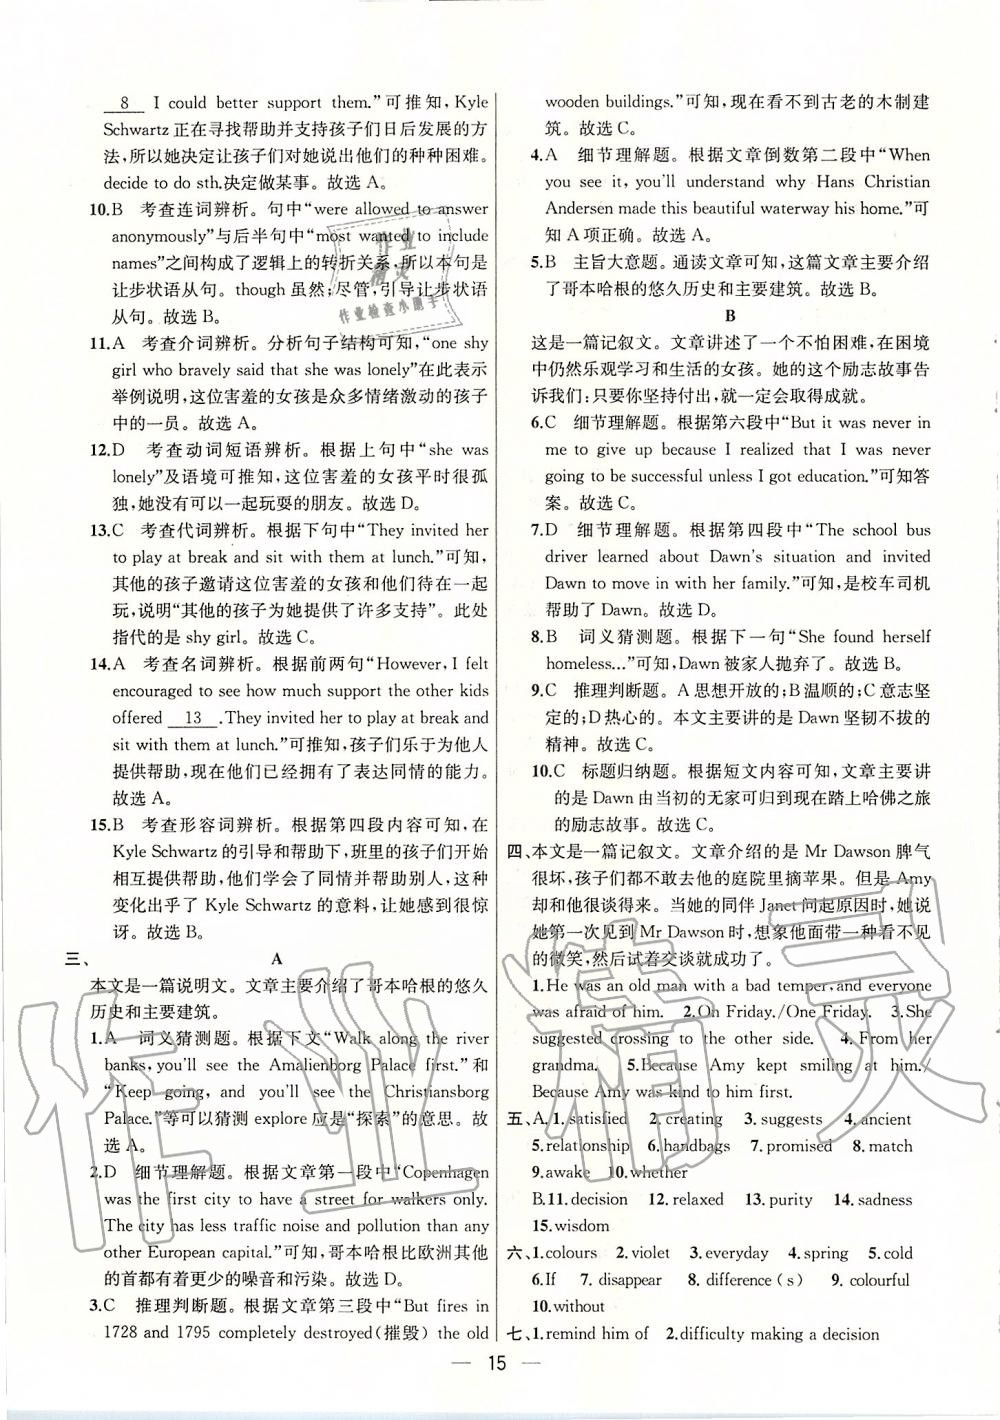 8 I could better support them.”可推知，Kyle
Schwartz正在寻找帮助并支持孩子们日后发展的方
法，所以她决定让孩子们对她说出他们的种种困难。
decide to do sth.决定做某事。故选A。
10.B 考查连词辨析。句中“were allowed to answer
anonymously”与后半句中“most wanted to include
names”之间构成了逻辑上的转折关系，所以本句是
让步状语从句。though虽然；尽管，引导让步状语
从句。故选B。
11.A 考查介词辨析。分析句子结构可知，“one shy
girl who bravely said that she was lonely”在此表示
举例说明，这位害羞的女孩是众多情绪激动的孩子
中的一员。故选A。
12.D 考查动词短语辨析。根据上句中“she was
lonely”及语境可推知，这位害羞的女孩平时很孤
独，她没有可以一起玩耍的朋友。故选D。
13.C 考查代词辨析。根据下句中“They invited her
to play at break and sit with them at lunch.”可知，
其他的孩子邀请这位害羞的女孩和他们待在一起
玩，说明“其他的孩子为她提供了许多支持”。此处
指代的是shy girl。故选C。
14.A 考查名词辨析。根据前两句“However，I felt
encouraged to see how much support the other kids
offered 13 .They invited her to play at break and
sit with them at lunch.”可推知，孩子们乐于为他人
提供帮助，现在他们已经拥有了表达同情的能力。
故选A。
15.B 考查形容词辨析。根据第四段内容可知，在
Kyle Schwartz的引导和帮助下，班里的孩子们开始
相互提供帮助，他们学会了同情并帮助别人，这种
变化出乎了Kyle Schwartz的意料，让她感到很惊
讶。故选B。
三、 A
本文是一篇说明文。文章主要介绍了哥本哈根的悠久
历史和主要建筑。
1.A 词义猜测题。根据下文“Walk along the river
banks，you'll see the Amalienborg Palace first.”和
“Keep going，and you'll see the Christiansborg
Palace.”等可以猜测explore应是“探索”的意思。故
选A。
2.D 细节理解题。根据文章第一段中“Copenhagen
was the first city to have a street for walkers only.
The city has less traffic noise and pollution than any
other European capital.”可知，哥本哈根比欧洲其他
的首都有着更少的噪音和污染。故选D。
3.C 推理判断题。根据文章第三段中“But fires in
1728 and 1795 completely destroyed（摧毁）the old
wooden buildings.”可知，现在看不到古老的木制建
筑。故选C。
4.A 细节理解题。根据文章倒数第二段中“When
you see it，you'll understand why Hans Christian
Andersen made this beautiful waterway his home.”可
知A项正确。故选A。
5.B 主旨大意题。通读文章可知，这篇文章主要介绍
了哥本哈根的悠久历史和主要建筑。故选B。
B
这是一篇记叙文。文章讲述了一个不怕困难，在困境
中仍然乐观学习和生活的女孩。她的这个励志故事告
诉我们：只要你坚持付出，就一定会取得成就。
6.C 细节理解题。根据第六段中“But it was never in
me to give up because I realized that I was never
going to be successful unless I got education.”可知答
案。故选C。
7.D 细节理解题。根据第四段中“The school bus
driver learned about Dawn's situation and invited
Dawn to move in with her family.”可知，是校车司机
帮助了Dawn。故选D。
8.B 词义猜测题。根据下一句“She found herself
homeless...”可知，Dawn被家人抛弃了。故选B。
9.C 推理判断题。A思想开放的；B温顺的；C意志坚
定的；D热心的。本文主要讲的是Dawn坚韧不拔的
精神。故选C。
10.C 标题归纳题。根据短文内容可知，文章主要讲
的是Dawn由当初的无家可归到现在踏上哈佛之旅
的励志故事。故选C。
四、本文是一篇记叙文。文章介绍的是Mr Dawson脾气
很坏，孩子们都不敢去他的庭院里摘苹果。但是Amy
却和他很谈得来。当她的同伴Janet问起原因时，她说
她第一次见到Mr Dawson时，想象他面带一种看不见
的微笑，然后试着交谈就成功了。
1.He was an old man with a bad temper，and everyone
was afraid of him. 2.On Friday./One Friday. 3.She
suggested crossing to the other side. 4.From her
grandma. 5.Because Amy kept smiling at him./
Because Amy was kind to him first.
五、A.1.satisfied 2.creating 3.suggests 4.ancient
5.relationship 6.handbags 7.promised 8.match
9.awake 10.whether
B.11.decision 12.relaxed 13.purity 14.sadness
15.wisdom
六、1.colours 2.violet 3.everyday 4.spring 5.cold
6.If 7.disappear 8.difference(s) 9.colourful
10.without
七、1.remind him of 2.difficulty making a decision
15
作业精灵
作业检查小助手
作业精灵